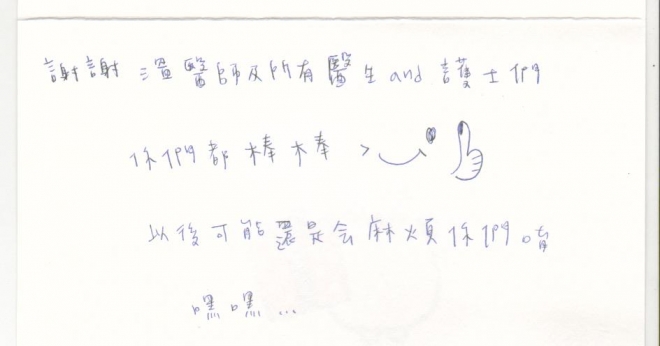 謝謝 溫醫師及所有醫生and護士們
你們都棒棒
以後可能還是会麻煩你們唷
嘿嘿...